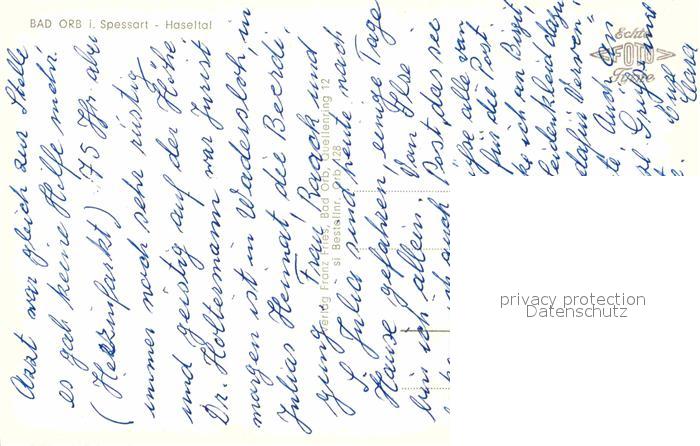 BAD ORB i. Spessart - Haseltal
Echte
FOTO
Verlag Franz Fries, Bad Orb, Quellenring 12
si Bestellnr. Orb 128
Arzt war gleich zur Stelle
es gab keine Hilfe mehr.
(Herzinfarkt) 75 Jhr. aber
immer noch sehr rüstig
und geistig auf der Höhe.
Dr. Holtermann war Jurist
morgen ist in Wadersloh, in
Julias Heimat, die Beerdi-
gung. Frau Raack und
L. Julia sind heute nach
Hause gefahren, einige Tage
bin ich allein. Von Ilse
ich auch Post, das sie
alle von
für die Post.
ich an Birgit,
dazu
dafür Nerven"
Auch an
Grüße und
privacy protection
Datenschutz